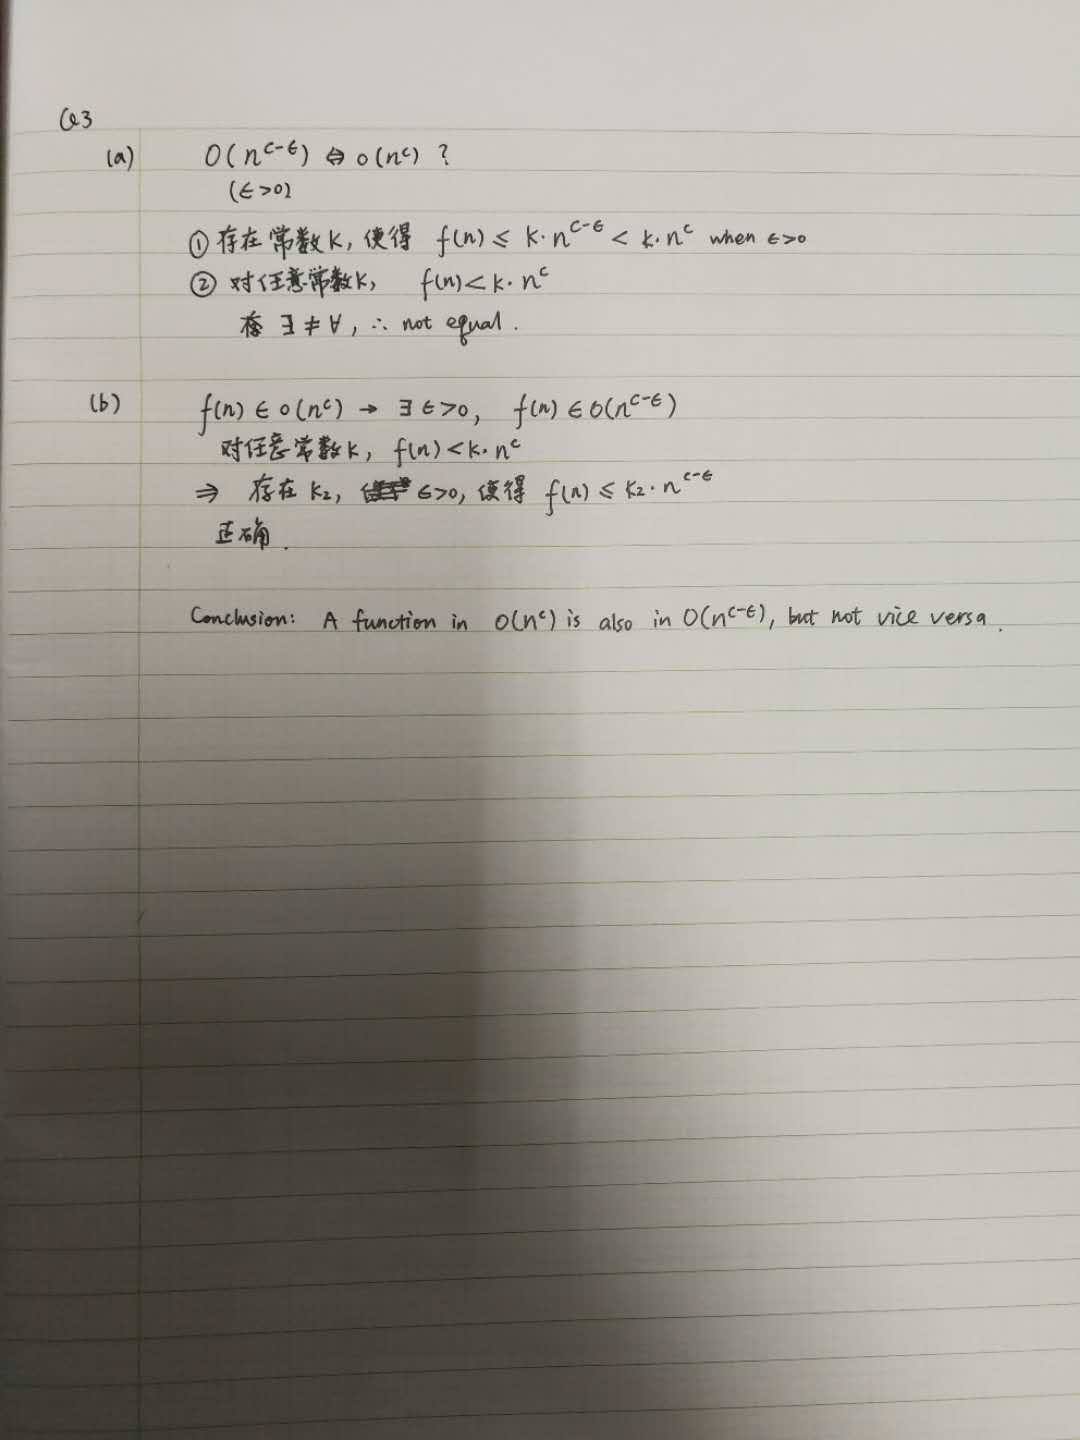 Q3
(a) O(n^{c-ϵ}) ⇔ o(n^c) ?
(ϵ>0)
① 存在常数K, 使得 f(n) ≤ K·n^{c-ϵ} < k·n^c when ϵ>0
② 对任意常数K, f(n) < K·n^c
∃ ≠ ∀, ∴ not equal.
(b) f(n) ∈ o(n^c) → ∃ ϵ>0, f(n) ∈ O(n^{c-ϵ})
对任意常数K, f(n) < K·n^c
⇒ 存在 K₂, ϵ>0, 使得 f(n) ≤ K₂·n^{c-ϵ}
正确.
Conclusion: A function in o(n^c) is also in O(n^{c-ϵ}), but not vice versa.